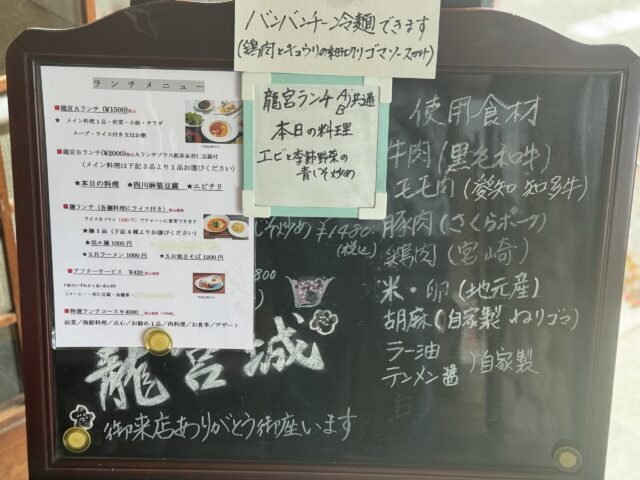 バンバンチー冷麺できます
(鶏肉とキュウリの細切りゴマソースかけ)
龍宮ランチ A B 共通
本日の料理
エビと季節野菜の
青じそ炒め
ランチメニュー
■龍宮Aランチ (¥1500)税込
★ メイン料理1品・前菜・小鉢・サラダ
スープ・ライス付き又はお粥
■龍宮Bランチ (¥2000)税込 Aランチプラス飲茶&杏仁豆腐付
(メイン料理は下記3品より1品お選びください)
★本日の料理 ★四川麻婆豆腐 ★エビチリ
■麺ランチ (各麺料理にライス付き)
ライスをプラス (200円) でチャハンに変更できます
★麺1品 (下記4種よりお選びください)
★坦々麺 1000円
★五目ラーメン 1000円 ★五目焼きそば 1200円
■アフターサービス ¥420
(コーヒー・杏仁豆腐・烏龍茶
■特選ランチコース ¥4000
前菜/海鮮料理/点心/お勧め1品/肉料理/お食事/デザート
じそ炒め ¥1480.
(税込)
800
龍宮城
御来店ありがとう御座います
使用食材
牛肉 (黒毛和牛)
モモ肉 (愛知 知多牛)
豚肉 (さくらポーク)
鶏肉 (宮崎)
米・卵 (地元産)
胡麻 (自家製 ねりゴマ)
ラー油
テンメン醤 ) 自家製